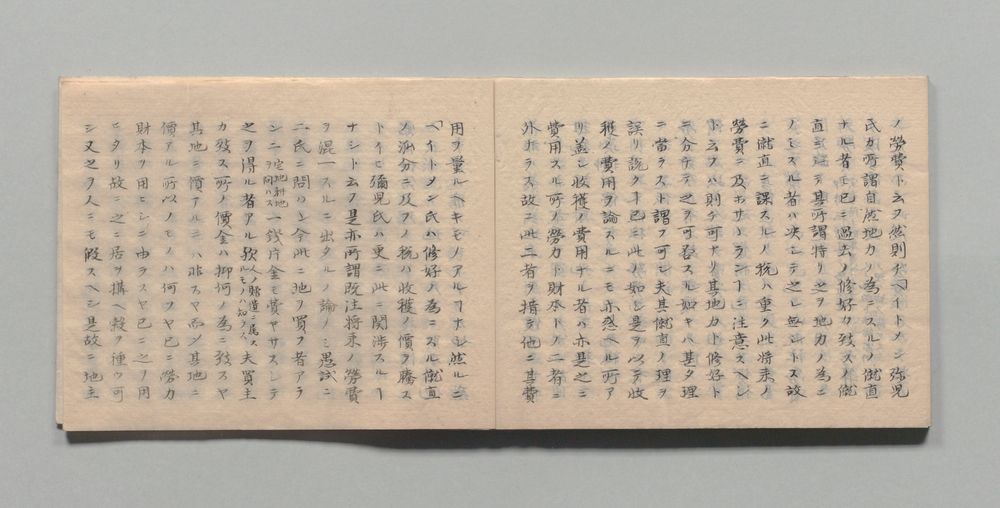 ノ勞費ト云フ然則チ「ヘイトメン弥児
氏カ所謂自然地力ノ為ニスルノ僦直
ナル者モ已ニ過去ノ修好力致スノ僦
直ニシテ其所謂特リ之ヲ地力ノ為ニ
ノミスル者ハ决シテ之レ無シトス故
ニ僦直ニ課スルノ税ハ重ク此将来ノ
勞費ニ及ホサヽランヿニ注意スヘシ
ト云フハ則チ可ナリ其地力ト修好ト
ニ分チテ之ヲ可否スル如キハ甚タ理
ニ當ラスト謂フ可シ夫其僦直ノ理ヲ
誤リ説クヿ已ニ此ノ如シ是ヲ以テ收
穫ノ費用ヲ論スルニモ亦惑ヘル所ア
リ蓋シ收穫ノ費用ナル者ハ亦是之ニ
費用スル所ノ勞力ト財本トノ二者ニ
外ナラス故ニ此二者ヲ措テ他ニ其費
用ヲ量ルヘキモノアルヿナシ然ルニ
「ヘイトメン氏ハ修好ノ為ニスル僦直
ノ派分ニ及フノ税ハ收穫ノ價ヲ騰ス
トイヒ彌児氏ハ更ニ此ニ関渉スルヿ
ナシト云フ是亦所謂既往将来ノ勞費
ヲ混一スルニ出タルノ論ノミ愚試ニ
二氏ニ問ハン今此ニ地ヲ買フ者アラ
ンニ空地耕地ヲ問ハス一銭片金モ費ヤサスシテ
之ヲ得ル者アル歟人ノ贈遺ニ係ルモノハ知ラス夫買主
カ致ス所ノ價金ハ抑何ノ為ニ致スヤ
其地ニ價アルニハ非スヤ而シ其地ニ
價アル所以ノモノハ何ソヤ已ニ勞力
財本ヲ用ヒシニ由ラスヤ已ニ之ヲ用
ヒタリ故ニ之ニ居ヲ搆ヘ穀ヲ種ウ可
シ又之ヲ人ニモ假スヘシ是故ニ地主